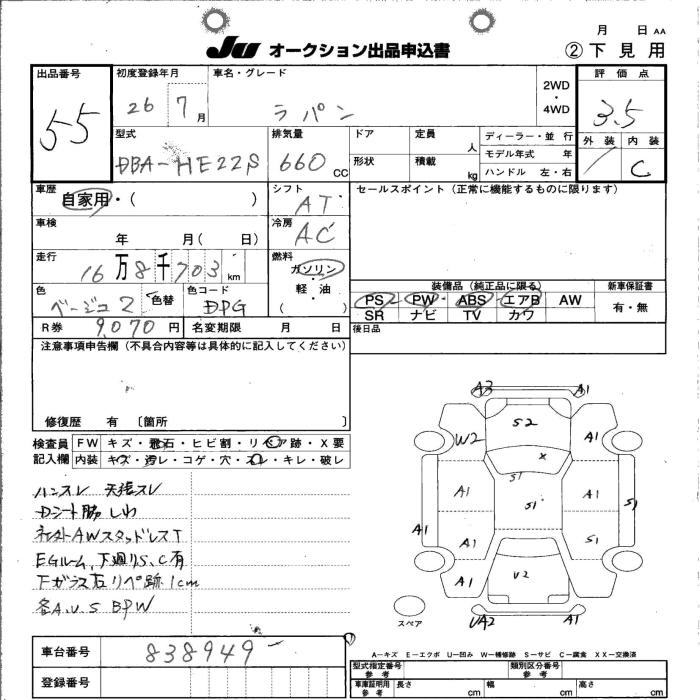 月 日 AA
JU オークション出品申込書 ②下見用
出品番号 初度登録年月 車名・グレード 2WD・4WD 評価点
55 26 7月 ラパン 3.5
型式 排気量 ドア 定員 人 ディーラー・並行 外装 内装
DBA-HE22S 660cc 形状 積載 kg モデル年式 年 C
ハンドル 左・右
車歴 自家用・( ) シフト AT セールスポイント(正常に機能するものに限ります)
車検 年 月( 日) 冷房 AC
走行 16万8千703km 燃料 ガソリン・軽油( )
色 ベージュ2 色替 色コード DPG
装備品(純正品に限る) 新車保証書
PS PW ABS エアB AW 有・無
SR ナビ TV カワ
R券 9,070円 名変期限 月 日 後日品
注意事項申告欄(不具合内容等は具体的に記入してください)
修復歴 有〔箇所 〕
検査員記入欄 FW キズ・飛石・ヒビ割・リペア跡・X要
内装 キズ・汚レ・コゲ・穴・スレ・キレ・破レ
ハンスレ 天張スレ
Dシート脇 しわ
AWスタッドレスT
EGルーム、下廻りS、C有
Fガラス右リペ跡1cm
各A.U.S BPW
A3 A1
S2
W2 A1
X
S1
A1 S1 A1 S1
A1 A1 A1
A1 U2 A1
UA2 A1
スペア
車台番号 838949
登録番号
A-キズ E-エクボ U-凹み W-補修跡 S-サビ C-腐食 XX-交換済
型式指定番号 参考 類別区分番号 参考
車庫証明用 参考 長さ cm 幅 cm 高さ cm